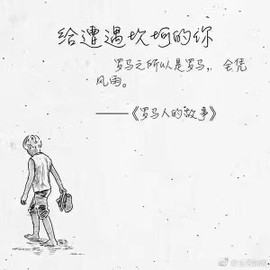 给遭遇坎坷的你
罗马之所以是罗马,,全凭
风雨。
——《罗马人的故事》